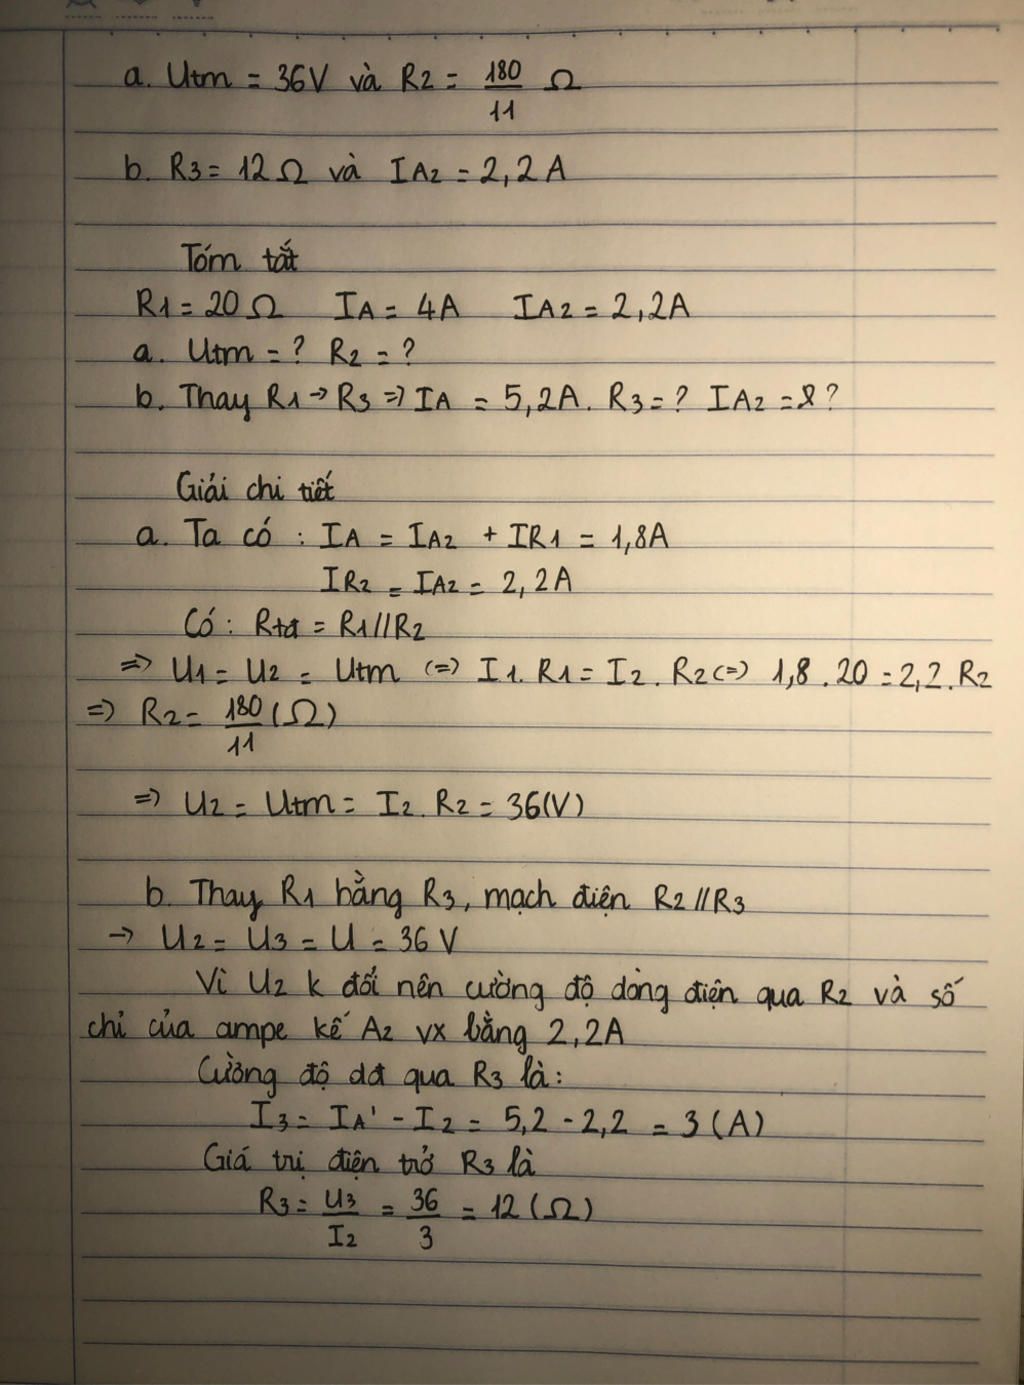 a. Utm = 36V và R2 = 180/11 Ω
b. R3 = 12Ω và IA2 = 2,2A
Tóm tắt
R1 = 20Ω IA = 4A IA2 = 2,2A
a. Utm = ? R2 = ?
b. Thay R1 → R3 => IA = 5,2A. R3 = ? IA2 = ?
Giải chi tiết
a. Ta có : IA = IA2 + IR1 = 1,8A
IR2 = IA2 = 2,2A
Có: Rtđ = R1//R2
=> U1 = U2 = Utm <=> I1. R1 = I2. R2 <=> 1,8 . 20 = 2,2. R2
=> R2 = 180/11 (Ω)
=> U2 = Utm = I2. R2 = 36(V)
b. Thay R1 bằng R3, mạch điện R2 // R3
→ U2 = U3 = U = 36 V
Vì U2 k đổi nên cường độ dòng điện qua R2 và số
chỉ của ampe kế A2 vx bằng 2,2A
Cường độ dđ qua R3 là:
I3 = IA' - I2 = 5,2 - 2,2 = 3 (A)
Giá trị điện trở R3 là
R3 = U3/I2 = 36/3 = 12 (Ω)